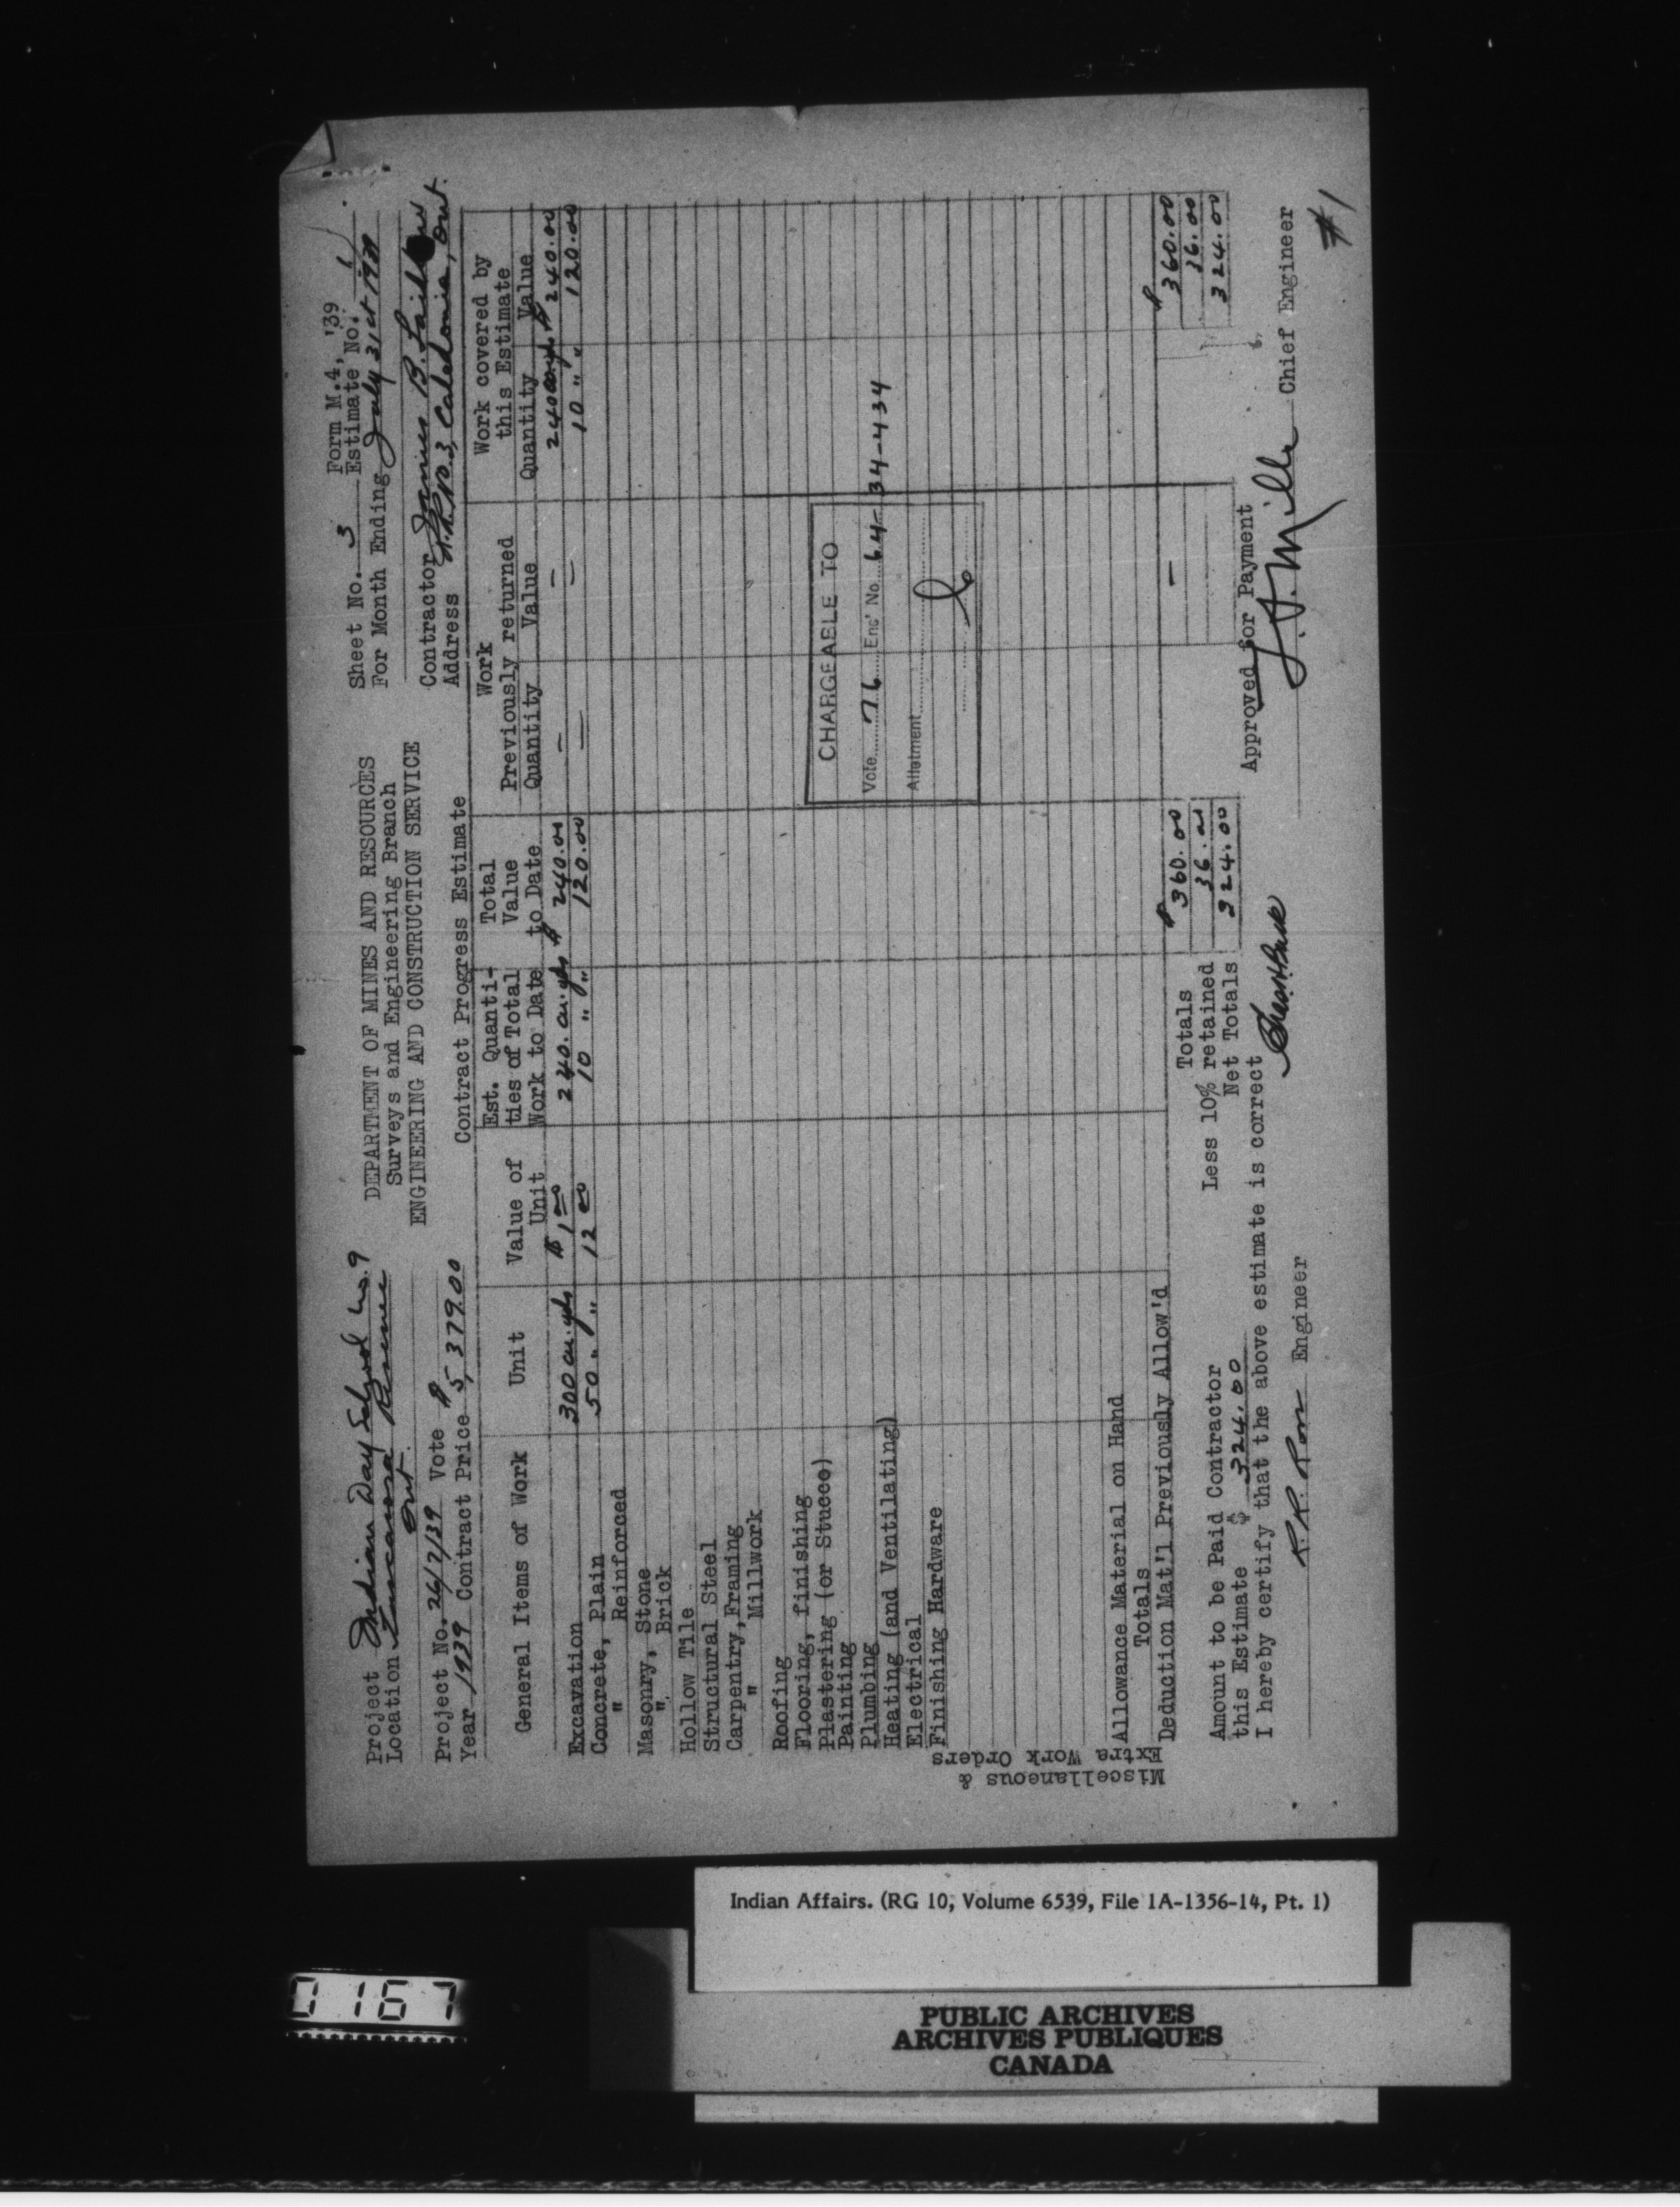 Form M.4, '39
Sheet No. 3 Estimate No. 1
For Month Ending July 31st 1939
Contractor James B.
Address R.R. No. 3, Caledonia, Ont.
DEPARTMENT OF MINES AND RESOURCES
Surveys and Engineering Branch
ENGINEERING AND CONSTRUCTION SERVICE
Project Indian Day School No. 9
Location Tuscarora Reserve
Ont.
Project No. 26/7/39 Vote
Year 1939 Contract Price $5,379.00
Contract Progress Estimate
General Items of Work Unit Value of Unit Est. Quantities of Total Work to Date Total Value to Date Work Previously returned Quantity Value Work covered by this Estimate Quantity Value
Excavation 300 cu. yds $1 00 240 cu. yds $240.00 — — 240 cu. yds. $240.00
Concrete, Plain 50 " " 12 00 10 " " 120.00 — — 10 " " 120.00
" Reinforced
Masonry, Stone
" Brick
Hollow Tile
Structural Steel
Carpentry, Framing
" Millwork
Roofing
Flooring, finishing
Plastering (or Stucco)
Painting
Plumbing
Heating (and Ventilating)
Electrical
Finishing Hardware
Miscellaneous &
Extra Work Orders
CHARGEABLE TO
Vote 76 Enc' No. 64-34-434
Allotment
Allowance Material on Hand
Totals
Deduction Mat'l Previously Allow'd
Totals $360.00 — $360.00
Less 10% retained 36.00 36.00
Net Totals 324.00 324.00
Amount to be Paid Contractor
this Estimate $ 324.00
I hereby certify that the above estimate is correct
Approved for Payment
R. R. Ross Engineer
Chief Engineer
#1
Indian Affairs. (RG 10, Volume 6539, File 1A-1356-14, Pt. 1)
0167
PUBLIC ARCHIVES
ARCHIVES PUBLIQUES
CANADA